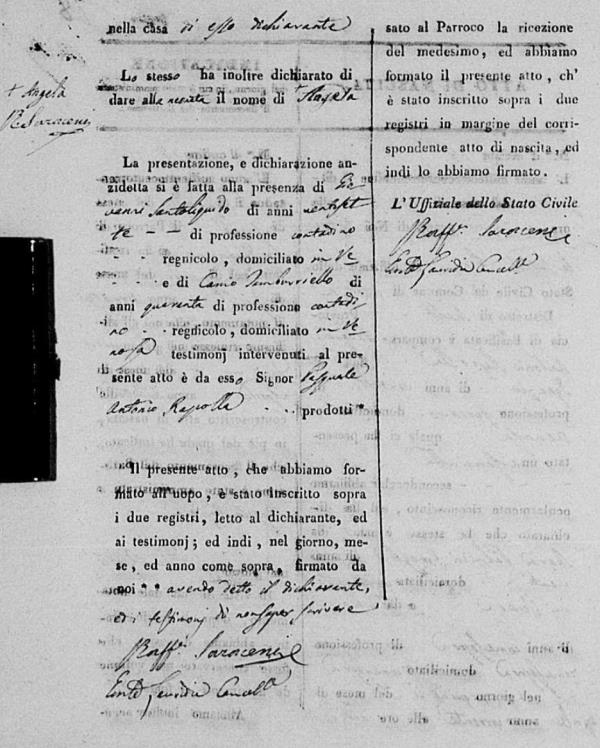 nella casa di esso dichiarante
Lo stesso ha inoltre dichiarato di
dare alla neonata il nome di + Angela
+ Angela
R. Saraceni
La presentazione, e dichiarazione an-
zidetta si è fatta alla presenza di Gio
vanni Santoliquido di anni ventiset
te - - di professione contadino
regnicolo, domiciliato in Ve
e di Canio Tamburriello di
anni quaranta di professione contadi
no regnicolo, domiciliato in Ve
nosa testimonj intervenuti al pre-
sente atto è da esso Signor Pasquale
Antonio Rapolla prodotti *
Il presente atto, che abbiamo for-
mato all'uopo, è stato inscritto sopra
i due registri, letto al dichiarante, ed
ai testimonj; ed indi, nel giorno, me-
se, ed anno come sopra, firmato da
noi ** avendo detto il dichiarante,
ed i testimonj di non saper scrivere
Raff. Saraceni
sato al Parroco la ricezione
del medesimo, ed abbiamo
formato il presente atto, ch'
è stato inscritto sopra i due
registri in margine del corri-
spondente atto di nascita, ed
indi lo abbiamo firmato.
L'Uffiziale dello Stato Civile
Raff. Saraceni